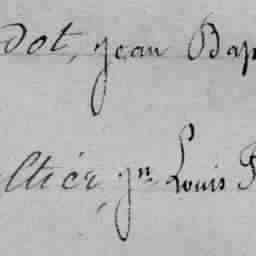 dot, Jean Bap
ltier, Jn Louis